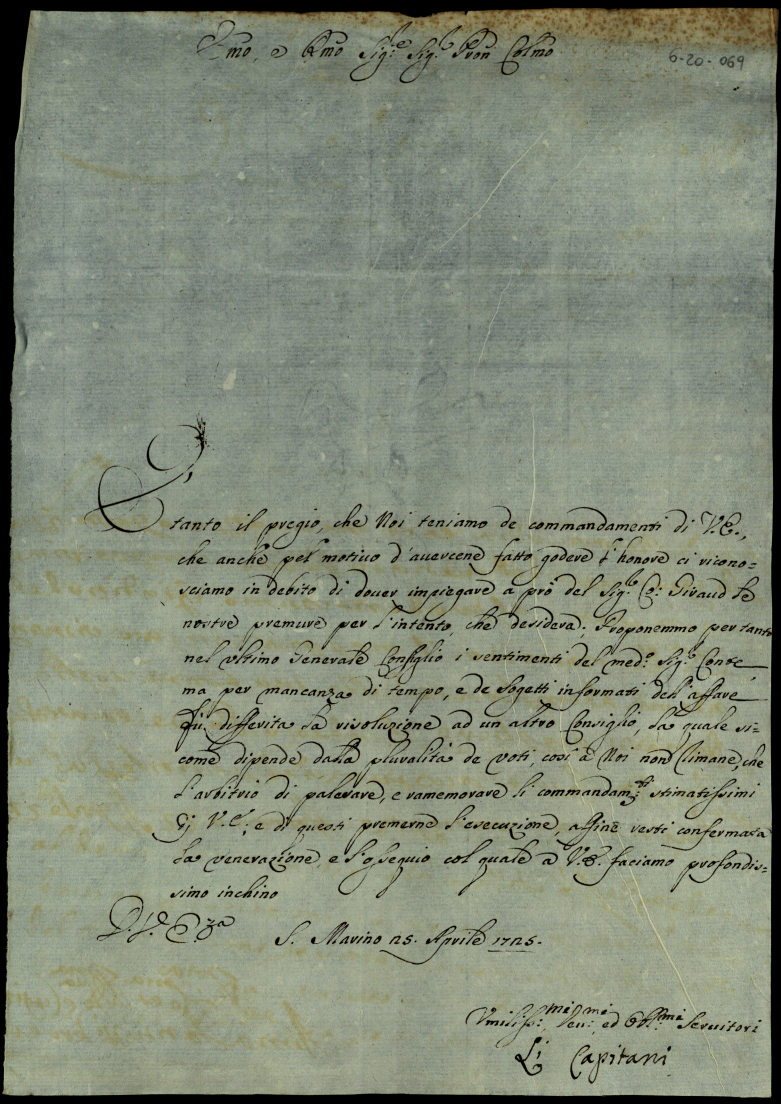 Emo, e Rmo Sig.e Sig.r Pron Colmo
6-20-069
È
tanto il pregio, che Noi teniamo de commandamenti di V.E.,
che anche pel motivo d'avercene fatto godere l'honore ci ricono=
sciamo in debito di dover impiegare a prò del Sig.r Co: Giraud le
nostre premure per l'intento, che desidera; Proponemmo per tanto
nel ultimo Generale Consiglio i sentimenti del med.o Sig.r Conte
ma per mancanza di tempo, e de sogetti informati dell'affare
fu differita la risoluzione ad un altro Consiglio, la quale si=
come dipende dalla pluralità de voti, così à Noi non rimane, che
l'arbitrio di palesare, e ramemorare li commandam.ti stimatissimi
di V.E; e di questi premerne l'esecuzione, affine resti confermata
la venerazione, e l'ossequio col quale a V.E. faciamo profondis=
simo inchino
D. V. E.za
S. Marino 25. Aprile 1725.
Umiliss:mi Dev:mi ed Obb:mi Servitori
Li Capitani